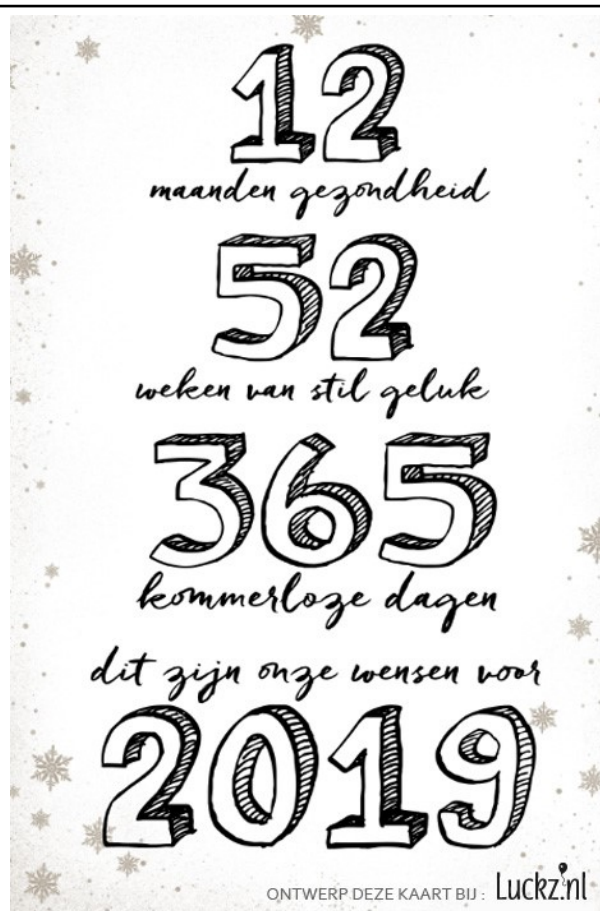 12
maanden gezondheid
52
weken van stil geluk
365
kommerloze dagen
dit zijn onze wensen voor
2019
ONTWERP DEZE KAART BIJ : Luckz.nl